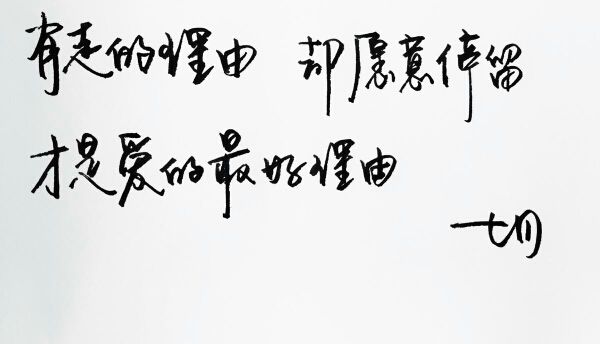 有走的理由 却愿意停留
才是爱的最好理由
七月